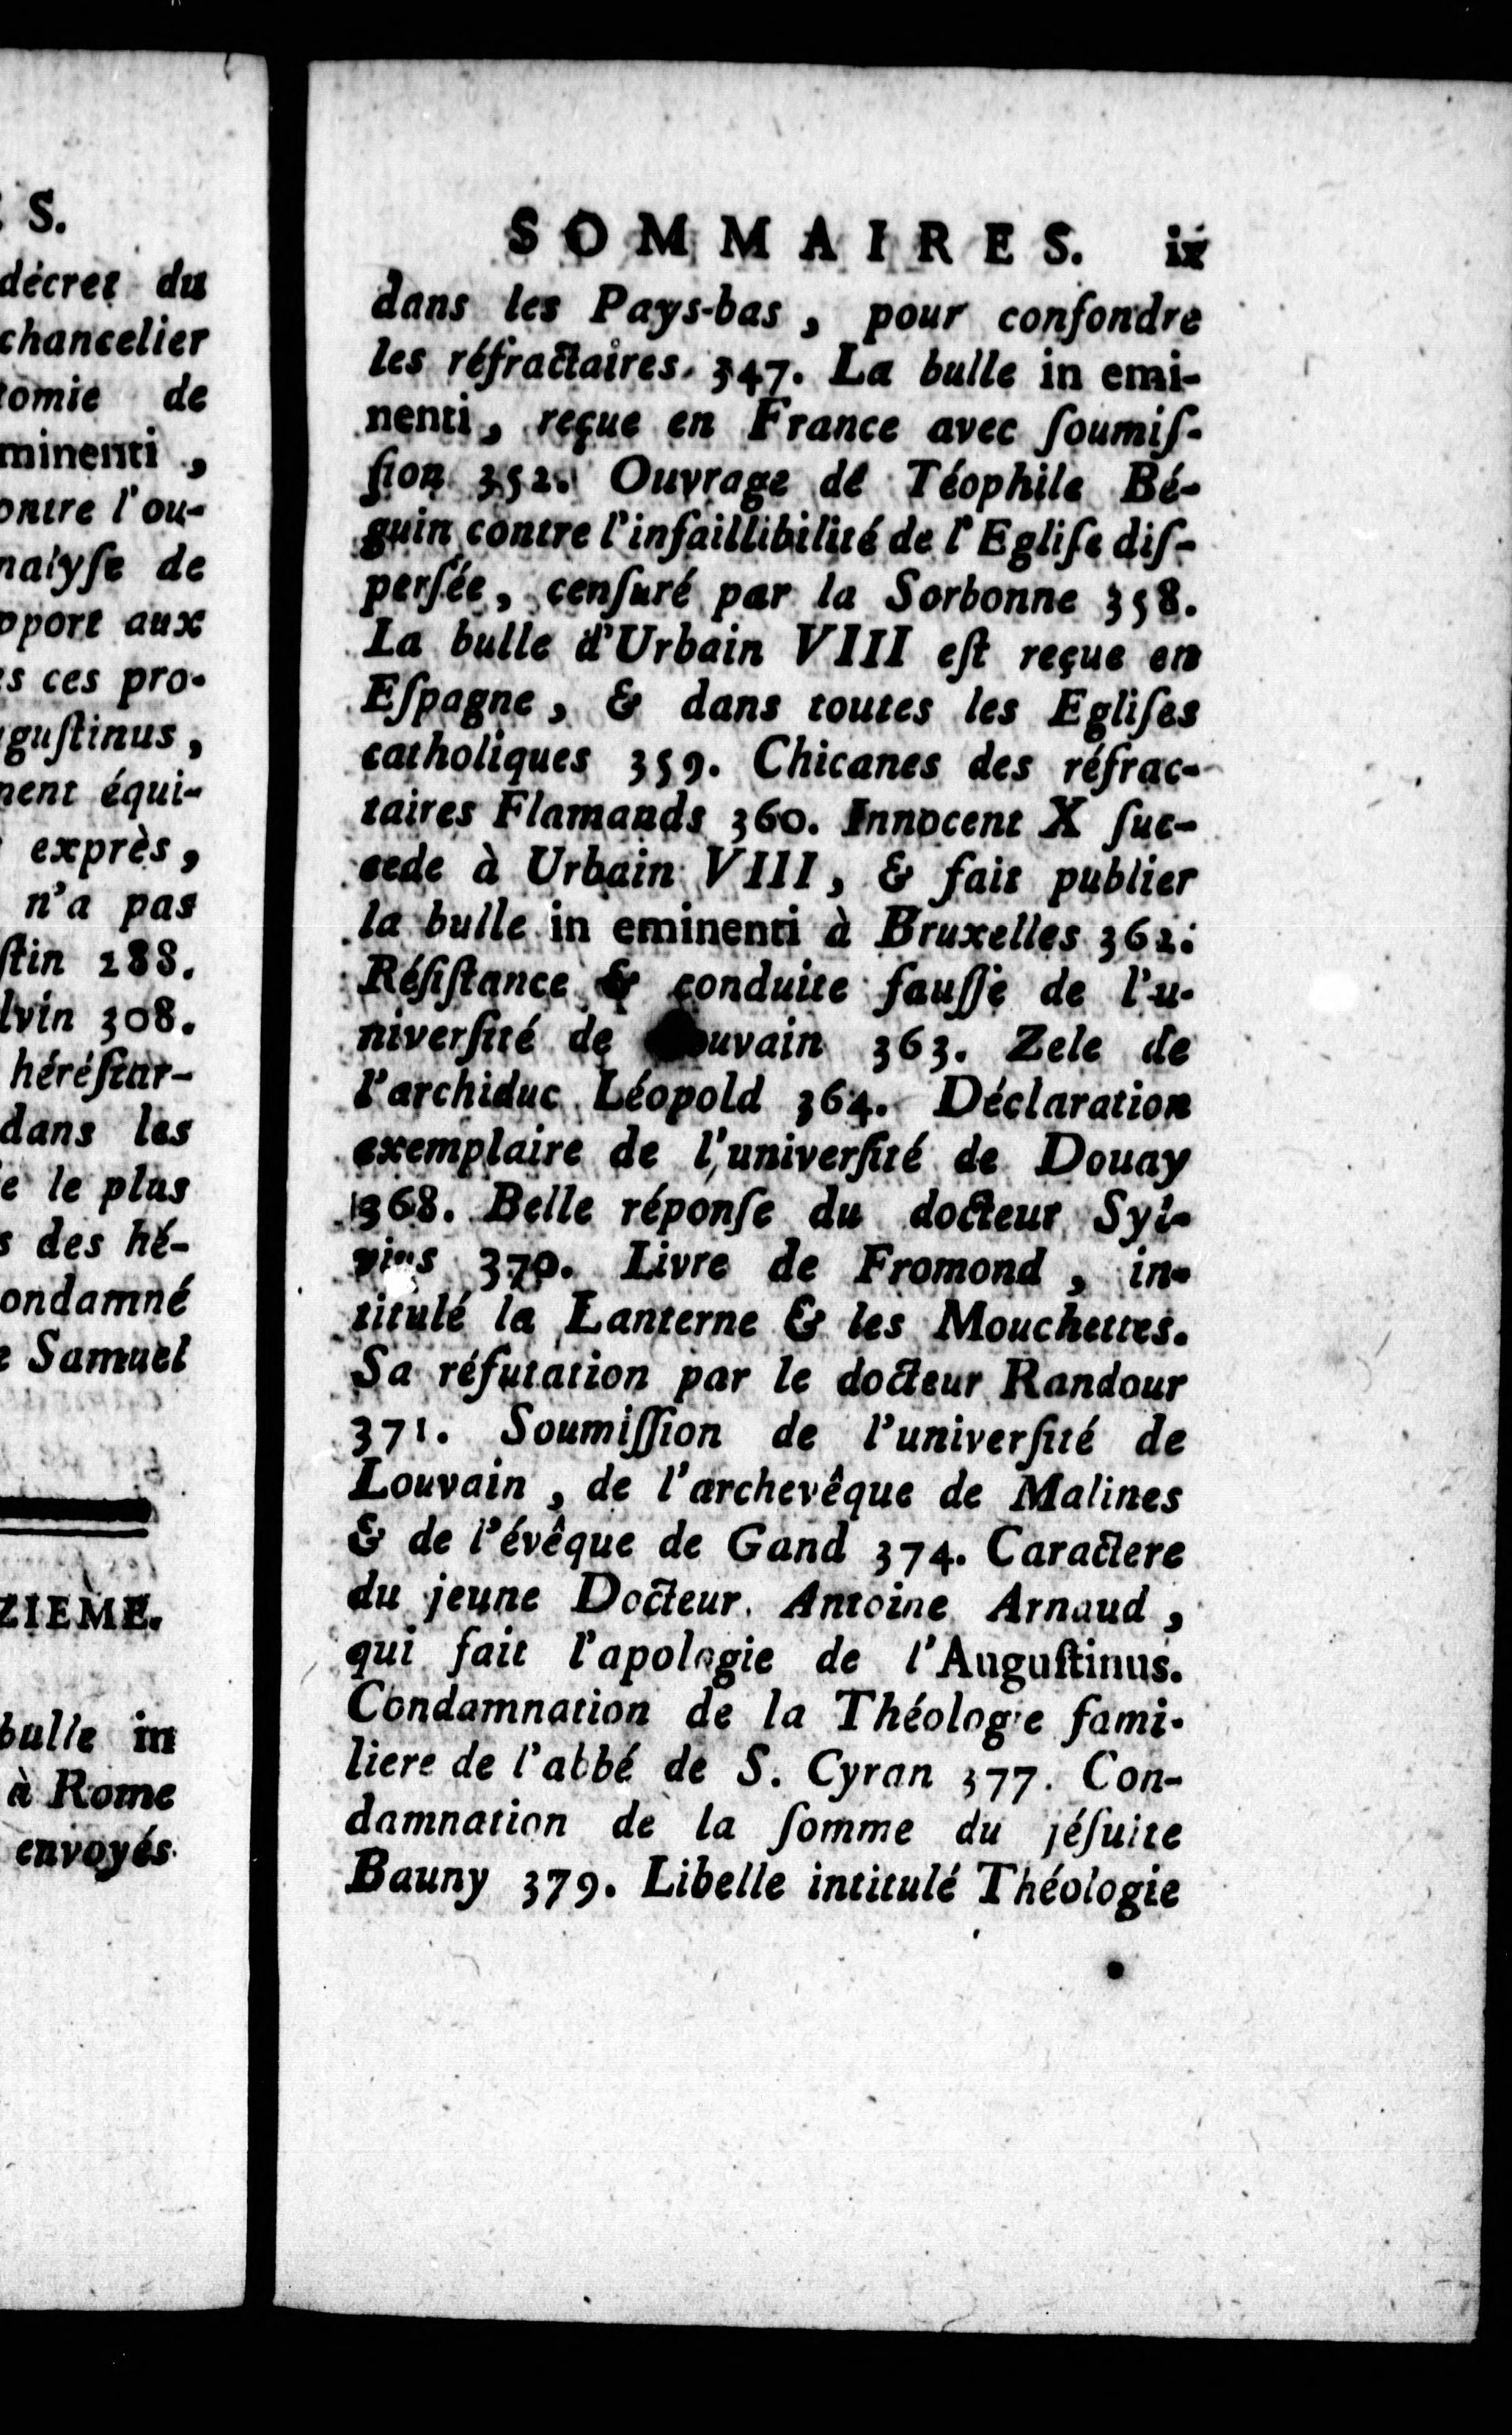 S.
décret du
chancelier
tomie de
minenti ,
ontre l'ou-
nalyſe de
pport aux
s ces pro-
guſtinus ,
ment équi-
exprès ,
n'a pas
ſtin 288.
lvin 308.
héréſiar-
dans les
e le plus
s des hé-
ondamné
e Samuel
ZIEME.
bulle in
à Rome
envoyés
SOMMAIRES. ix
dans les Pays-bas , pour confondre
les réfractaires. 347. La bulle in emi-
nenti , reçue en France avec ſoumiſ-
ſion 352. Ouvrage de Téophile Bé-
guin contre l'infaillibilité de l'Egliſe diſ-
perſée , cenſuré par la Sorbonne 358.
La bulle d'Urbain VIII eſt reçue en
Eſpagne , & dans toutes les Egliſes
catholiques 359. Chicanes des réfrac-
taires Flamands 360. Innocent X ſuc-
cede à Urbain VIII , & fait publier
la bulle in eminenti à Bruxelles 362.
Réſiſtance & conduite fauſſe de l'u-
niverſité de Louvain 363. Zele de
l'archiduc Léopold 364. Déclaration
exemplaire de l'univerſité de Douay
368. Belle réponſe du docteur Syl-
vius 370. Livre de Fromond , in-
titulé la Lanterne & les Mouchettes.
Sa réfutation par le docteur Randour
371. Soumiſſion de l'univerſité de
Louvain , de l'archevêque de Malines
& de l'évêque de Gand 374. Caractere
du jeune Docteur Antoine Arnaud ,
qui fait l'apologie de l'Auguſtinus.
Condamnation de la Théologie fami-
liere de l'abbé de S. Cyran 377. Con-
damnation de la ſomme du jéſuite
Bauny 379. Libelle intitulé Théologie